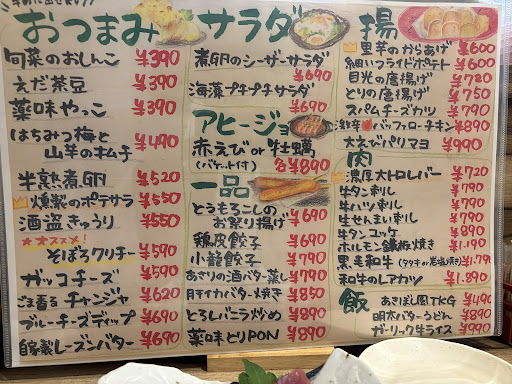 おつまみ
旬菜のおしんこ ¥390
えだ茶豆 ¥390
薬味やっこ ¥390
はちみつ梅と
山芋のキムチ ¥490
半熟煮卵 ¥520
燻製のポテサラ ¥550
酒盗きゅうり ¥550
★オススメ！
そぼろクリチー ¥590
ガッコチーズ ¥590
ごま香る チャンジャ ¥620
ブルーチーズディップ ¥690
自家製レーズンバター ¥690
サラダ
煮卵のシーザーサラダ
¥690
海藻プチプチサラダ
¥690
アヒージョ
赤えび or 牡蠣
(バケット付) 各¥890
一品
とうもろこしの
お祭り揚げ ¥690
鶏皮餃子 ¥690
小籠餃子 ¥790
あさりの酒バター蒸し ¥790
肝テイカバター焼き ¥850
とろしバラ炒め ¥890
薬味とりPON ¥890
揚
里芋のからあげ ¥600
細いフライドポテト ¥600
目光の唐揚げ ¥780
とりの唐揚げ ¥750
スパムチーズカツ ¥790
激辛 バッファローチキン ¥890
大えびパリマヨ ¥990
肉
濃厚大トロレバー ¥720
牛タン刺し ¥790
牛ハツ刺し ¥790
生せんまい刺し ¥790
牛タンユッケ ¥890
ホルモン鉄板焼き ¥1.190
黒毛和牛 ¥1.79
和牛のレアカツ ¥1.890
飯
あさぼし風TKG ¥490
明太バターうどん ¥890
ガーリック牛ライス ¥990